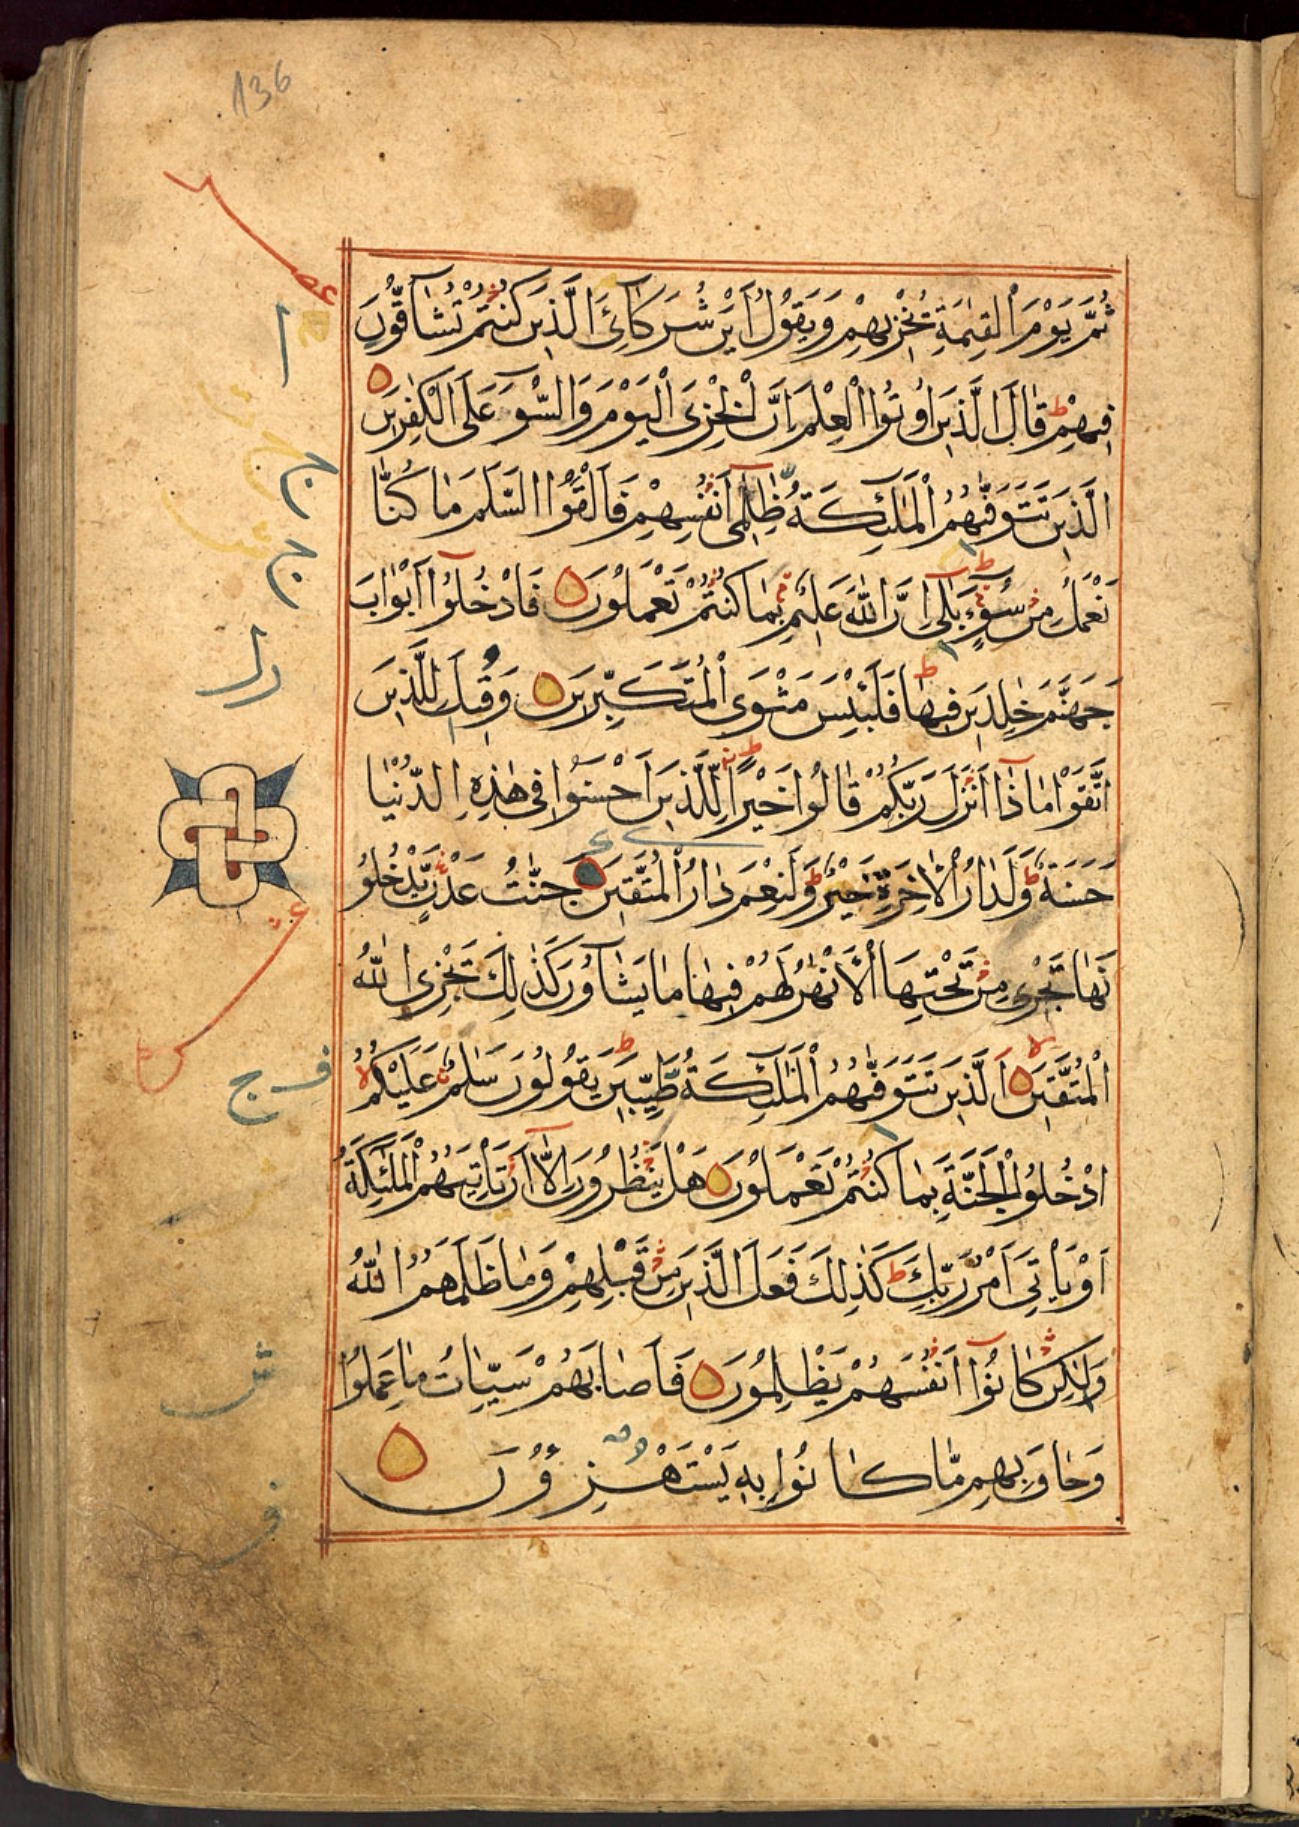 136
ثُمَّ يَوْمَ الْقِيٰمَةِ يُخْزِيهِمْ وَيَقُولُ اَيْنَ شُرَكَآئِىَ الَّذِينَ كُنْتُمْ تُشَآقُّونَ
فِيهِمْ ط قَالَ الَّذِينَ اُوتُوا الْعِلْمَ اِنَّ الْخِزْىَ الْيَوْمَ وَالسُّوۤءَ عَلَى الْكٰفِرِينَ
الَّذِينَ تَتَوَفّٰىهُمُ الْمَلٰٓئِكَةُ ظَالِمِىٓ اَنْفُسِهِمْ فَاَلْقَوُا السَّلَمَ مَا كُنَّا
نَعْمَلُ مِنْ سُوۤءٍ ط بَلٰىٓ اِنَّ اللّٰهَ عَلِيمٌ بِمَا كُنْتُمْ تَعْمَلُونَ فَادْخُلُوٓا اَبْوَابَ
جَهَنَّمَ خٰلِدِينَ فِيهَا ط فَلَبِئْسَ مَثْوَى الْمُتَكَبِّرِينَ وَقِيلَ لِلَّذِينَ
اتَّقَوْا مَاذَآ اَنْزَلَ رَبُّكُمْ قَالُوا خَيْرًا ط لِلَّذِينَ اَحْسَنُوا فِى هٰذِهِ الدُّنْيَا
حَسَنَةٌ ط وَلَدَارُ الْاٰخِرَةِ خَيْرٌ ط وَلَنِعْمَ دَارُ الْمُتَّقِينَ جَنّٰتُ عَدْنٍ يَدْخُلُو
نَهَا تَجْرِى مِنْ تَحْتِهَا الْاَنْهٰرُ لَهُمْ فِيهَا مَا يَشَآؤُنَ كَذٰلِكَ يَجْزِى اللّٰهُ
الْمُتَّقِينَ لا اَلَّذِينَ تَتَوَفّٰىهُمُ الْمَلٰٓئِكَةُ طَيِّبِينَ ط يَقُولُونَ سَلٰمٌ عَلَيْكُمُ لا
ادْخُلُوا الْجَنَّةَ بِمَا كُنْتُمْ تَعْمَلُونَ هَلْ يَنْظُرُونَ اِلَّآ اَنْ تَاْتِيَهُمُ الْمَلٰٓئِكَةُ
اَوْ يَاْتِىَ اَمْرُ رَبِّكَ ط كَذٰلِكَ فَعَلَ الَّذِينَ مِنْ قَبْلِهِمْ وَمَا ظَلَمَهُمُ اللّٰهُ
وَلٰكِنْ كَانُوٓا اَنْفُسَهُمْ يَظْلِمُونَ فَاَصَابَهُمْ سَيِّاٰتُ مَا عَمِلُوا
وَحَاقَ بِهِمْ مَّا كَانُوا بِهٖ يَسْتَهْزِؤُنَ